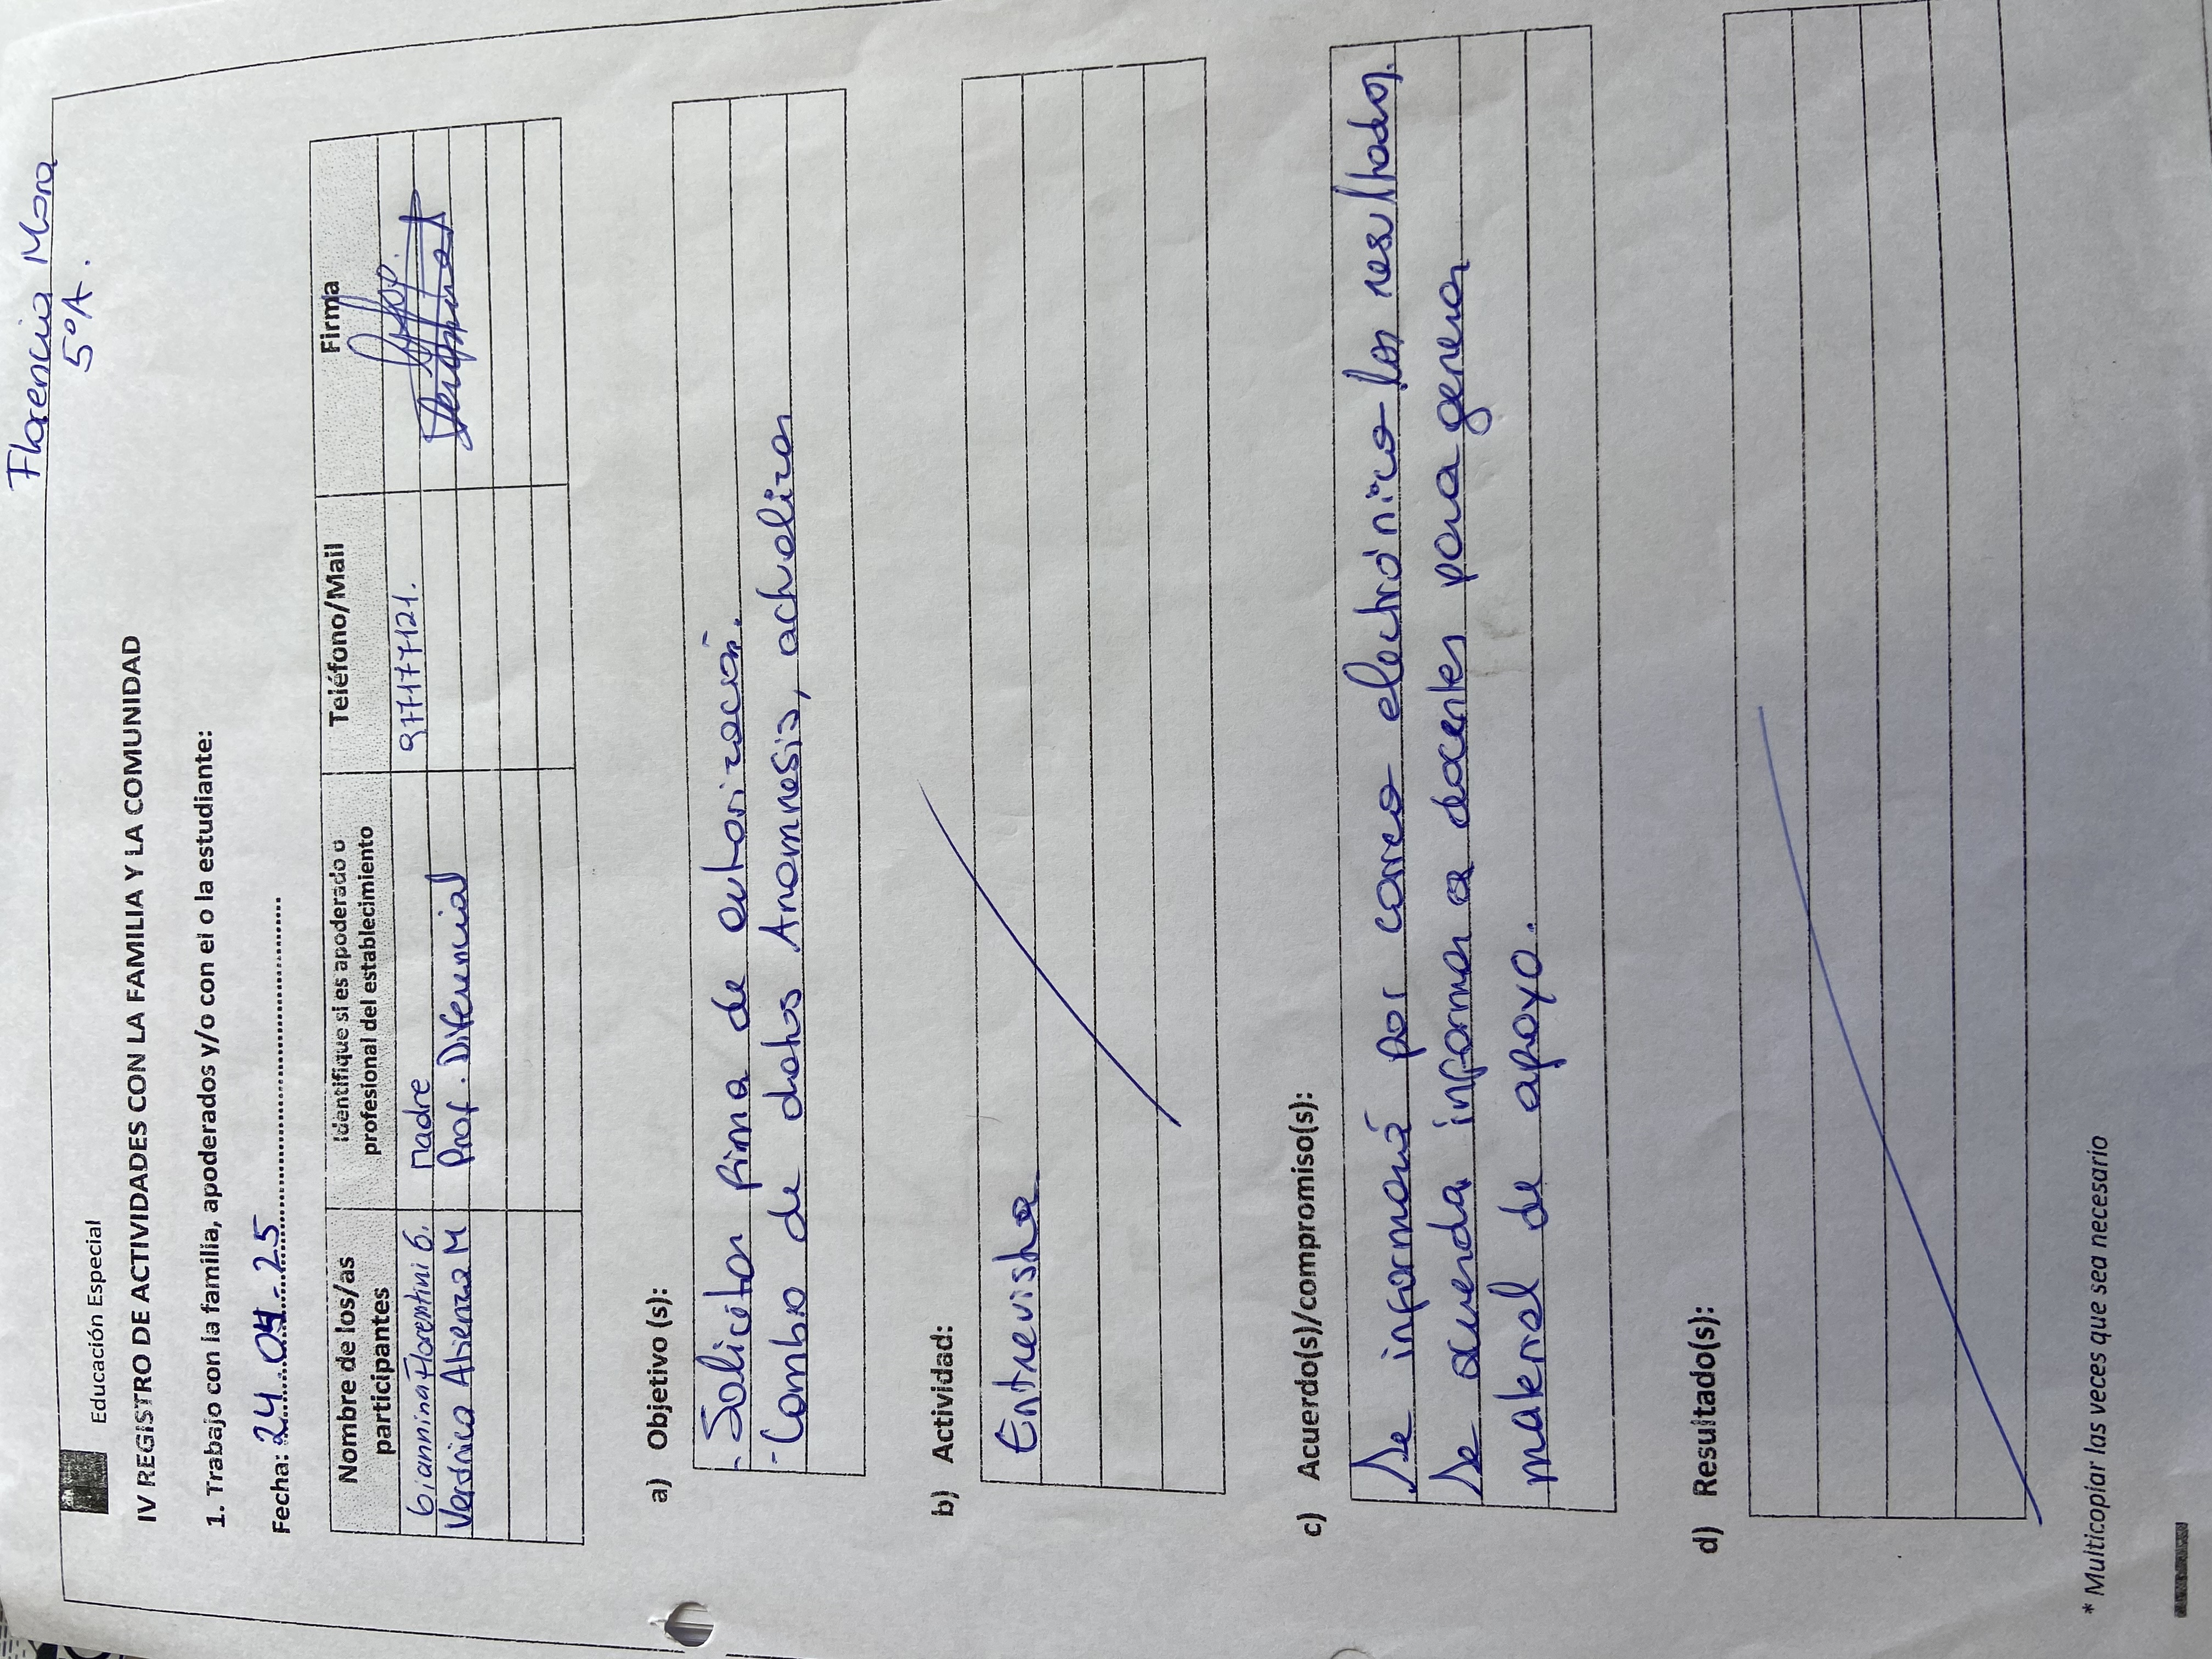 Florencia Mora
5°A.
Educación Especial
IV REGISTRO DE ACTIVIDADES CON LA FAMILIA Y LA COMUNIDAD
1. Trabajo con la familia, apoderados y/o con el o la estudiante:
Fecha: 24-04-25
Nombre de los/as participantes
Identifique si es apoderado o profesional del establecimiento
Teléfono/Mail
Firma
Giannina Florentini G. madre 977177121.
Verónica Atienza M Prof. Diferencial
a) Objetivo (s):
- Solicitar firma de autorización.
- Cambio de datos Anamnesis, actualizar
b) Actividad:
Entrevista
c) Acuerdo(s)/compromiso(s):
Se informará por correo electrónico los resultados.
Se acuerda informar a docentes para generar
material de apoyo.
d) Resultado(s):
* Multicopiar las veces que sea necesario